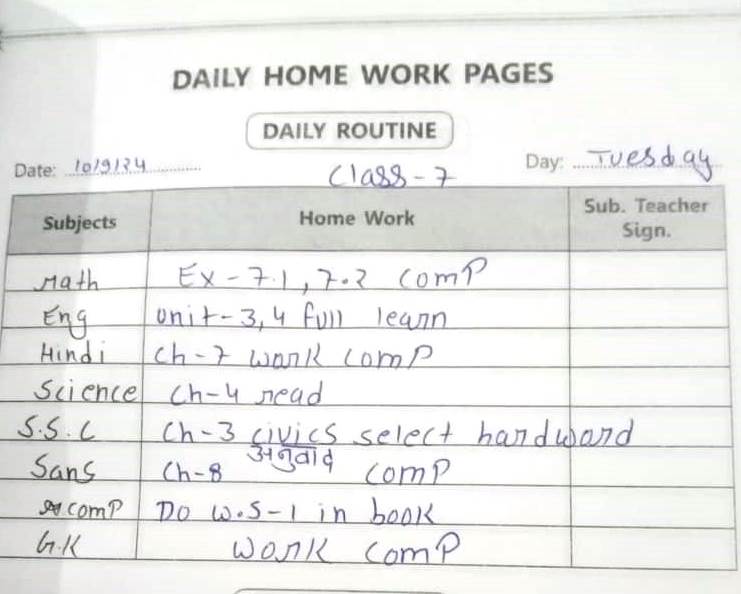 DAILY HOME WORK PAGES
DAILY ROUTINE
Date: 10/9/24 Class-7 Day: Tuesday
Subjects Home Work Sub. Teacher Sign.
Math Ex-7.1, 7.2 comP
Eng Unit-3,4 full learn
Hindi Ch-7 work comP
Science Ch-4 read
S.S.C Ch-3 civics select hardword
Sans Ch-8 अनुवाद comP
comP Do W.S-1 in book
G.K Work comP